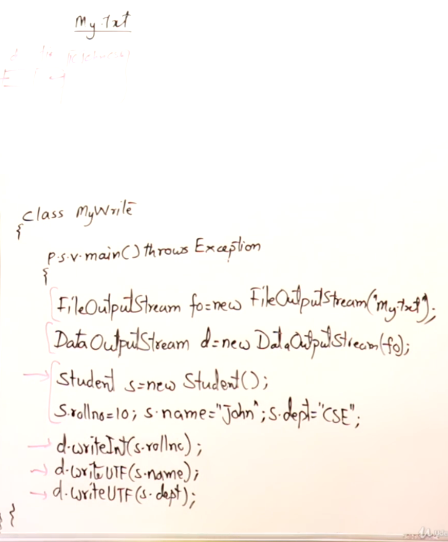 My.txt
class MyWrite
{
p.s.v.main() throws Exception
{
FileOutputStream fo=new FileOutputStream("My.txt");
DataOutputStream d=new DataOutputStream(fo);
Student s=new Student();
s.rollno=10; s.name="John"; s.dept="CSE";
d.writeInt(s.rollno);
d.writeUTF(s.name);
d.writeUTF(s.dept);
}}